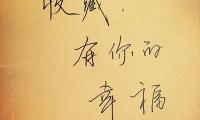 收藏，
有你的
幸福